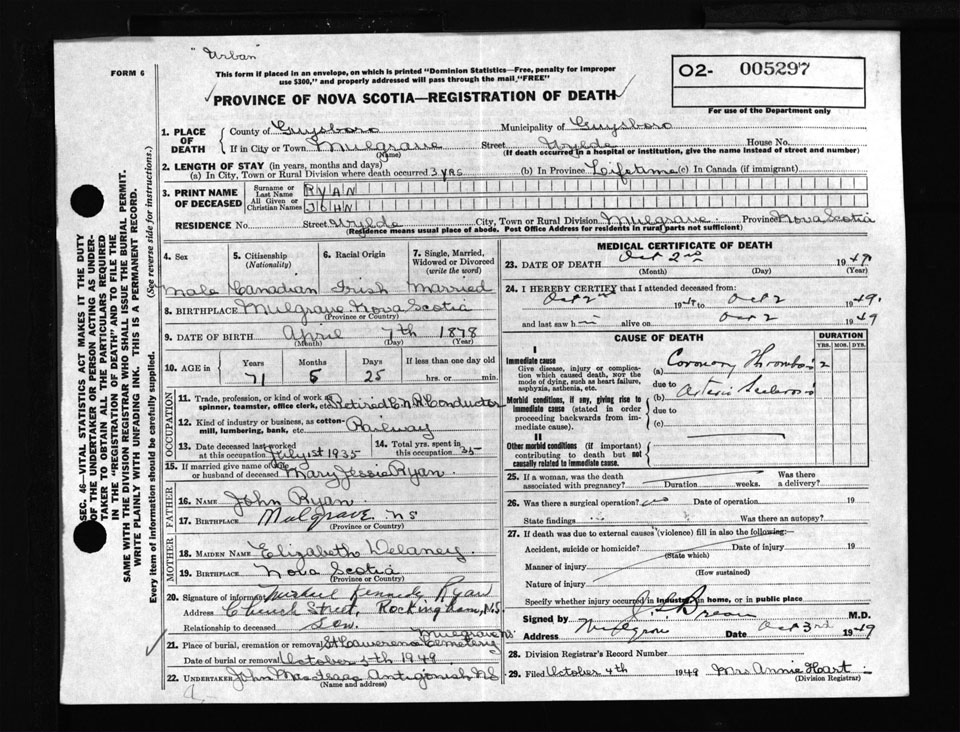 "Urban"
FORM 6
This form if placed in an envelope, on which is printed "Dominion Statistics—Free, penalty for improper
use $300," and properly addressed will pass through the mail, "FREE"
PROVINCE OF NOVA SCOTIA—REGISTRATION OF DEATH
O2- 005297
For use of the Department only
SEC. 46—VITAL STATISTICS ACT MAKES IT THE DUTY
OF THE UNDERTAKER OR PERSON ACTING AS UNDER-
TAKER TO OBTAIN ALL THE PARTICULARS REQUIRED
IN THE "REGISTRATION OF DEATH" AND TO FILE THE
SAME WITH THE DIVISION REGISTRAR WHO SHALL ISSUE THE BURIAL PERMIT.
WRITE PLAINLY WITH UNFADING INK. THIS IS A PERMANENT RECORD.
Every item of information should be carefully supplied. (See reverse side for instructions.)
1. PLACE OF DEATH County of Guysboro Municipality of Guysboro
If in City or Town Mulgrave Street Wylde House No.
(Name) (If death occurred in a hospital or institution, give the name instead of street and number)
2. LENGTH OF STAY (in years, months and days)
(a) In City, Town or Rural Division where death occurred 3 yrs (b) In Province Lifetime (c) In Canada (if immigrant)
3. PRINT NAME OF DECEASED Surname or Last Name RYAN
All Given or Christian Names JOHN
RESIDENCE No. Street Wylde City, Town or Rural Division Mulgrave Province Nova Scotia
(Residence means usual place of abode. Post Office Address for residents in rural parts not sufficient)
4. Sex 5. Citizenship (Nationality) 6. Racial Origin 7. Single, Married, Widowed or Divorced (write the word)
Male Canadian Irish Married
8. BIRTHPLACE Mulgrave Nova Scotia
(Province or Country)
9. DATE OF BIRTH April 7th 1878
(Month) (Day) (Year)
10. AGE in Years Months Days If less than one day old
71 5 25 hrs. or min.
OCCUPATION
11. Trade, profession, or kind of work as spinner, teamster, office clerk, etc. Retired C.N.R Conductor
12. Kind of industry or business, as cotton-mill, lumbering, bank, etc. Railway
13. Date deceased last worked at this occupation July 1st 1935 14. Total yrs. spent in this occupation 35
15. If married give name of wife or husband of deceased Mary Jessie Ryan
FATHER
16. NAME John Ryan
17. BIRTHPLACE Mulgrave, NS
(Province or Country)
MOTHER
18. MAIDEN NAME Elizabeth Delaney
19. BIRTHPLACE Nova Scotia
(Province or Country)
20. Signature of informant Michael Kennedy Ryan
Address Church Street, Rockingham, N.S.
Relationship to deceased Son.
21. Place of burial, cremation or removal St Lawerence Cemetery Mulgrave NS.
Date of burial or removal October 5th 1949
22. UNDERTAKER John MacIsaac Antigonish NS
(Name and address)
MEDICAL CERTIFICATE OF DEATH
23. DATE OF DEATH Oct 2nd 1949
(Month) (Day) (Year)
24. I HEREBY CERTIFY that I attended deceased from:
Oct 2nd 1949 to Oct 2 1949.
and last saw him alive on Oct 2 1949
CAUSE OF DEATH DURATION
YRS. MOS. DYS.
I
Immediate cause
Give disease, injury or complication which caused death, not the mode of dying, such as heart failure, asphyxia, asthenia, etc.
(a) Coronary Thrombosis
due to
Morbid conditions, if any, giving rise to immediate cause (stated in order proceeding backwards from immediate cause).
(b) Arterio Sclerosis
due to
(c)
II
Other morbid conditions (if important) contributing to death but not causally related to immediate cause.
25. If a woman, was the death associated with pregnancy? Duration weeks. Was there a delivery?
26. Was there a surgical operation? no Date of operation 19
State findings Was there an autopsy?
27. If death was due to external causes (violence) fill in also the following:—
Accident, suicide or homicide? Date of injury 19
(State which)
Manner of injury
(How sustained)
Nature of injury
Specify whether injury occurred in industry, in home, or in public place
Signed by M.D.
Address Mulgrave Date Oct 3rd 1949
28. Division Registrar's Record Number
29. Filed October 4th 1949 Mrs Annie Hart
(Division Registrar)